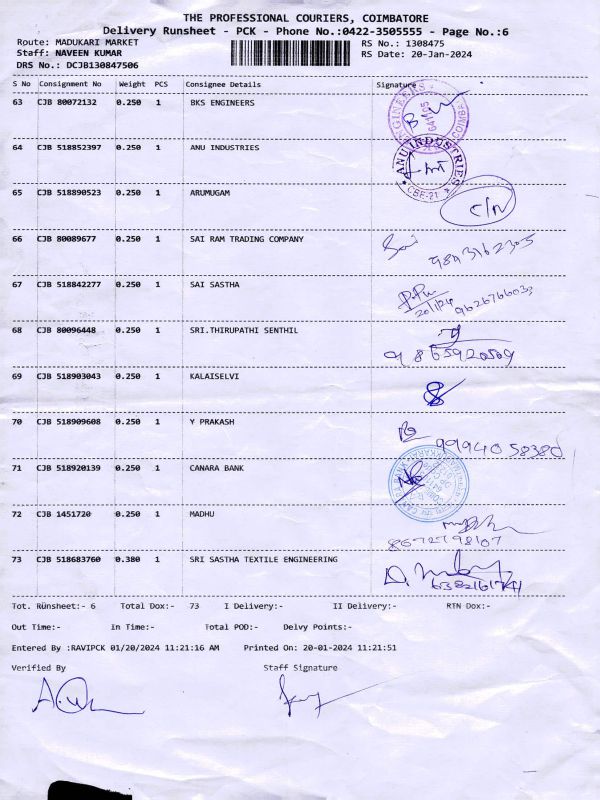 THE PROFESSIONAL COURIERS, COIMBATORE
Delivery Runsheet - PCK - Phone No.:0422-3505555 - Page No.:6
Route: MADUKARI MARKET RS No.: 1308475
Staff: NAVEEN KUMAR RS Date: 20-Jan-2024
DRS No.: DCJB130847506
S No Consignment No Weight PCS Consignee Details Signature
63 CJB 80072132 0.250 1 BKS ENGINEERS
64 CJB 518852397 0.250 1 ANU INDUSTRIES ANU INDUSTRIES CBE-21
65 CJB 518890523 0.250 1 ARUMUGAM C/N
66 CJB 80089677 0.250 1 SAI RAM TRADING COMPANY
9843162305
67 CJB 518842277 0.250 1 SAI SASTHA
20/1/24 9626766033
68 CJB 80096448 0.250 1 SRI.THIRUPATHI SENTHIL
9865920509
69 CJB 518903043 0.250 1 KALAISELVI
70 CJB 518909608 0.250 1 Y PRAKASH
9994058380
71 CJB 518920139 0.250 1 CANARA BANK
72 CJB 1451720 0.250 1 MADHU
8672798107
73 CJB 518683760 0.380 1 SRI SASTHA TEXTILE ENGINEERING
Tot. Runsheet:- 6 Total Dox:- 73 I Delivery:- II Delivery:- RTN Dox:-
Out Time:- In Time:- Total POD:- Delvy Points:-
Entered By :RAVIPCK 01/20/2024 11:21:16 AM Printed On: 20-01-2024 11:21:51
Verified By Staff Signature